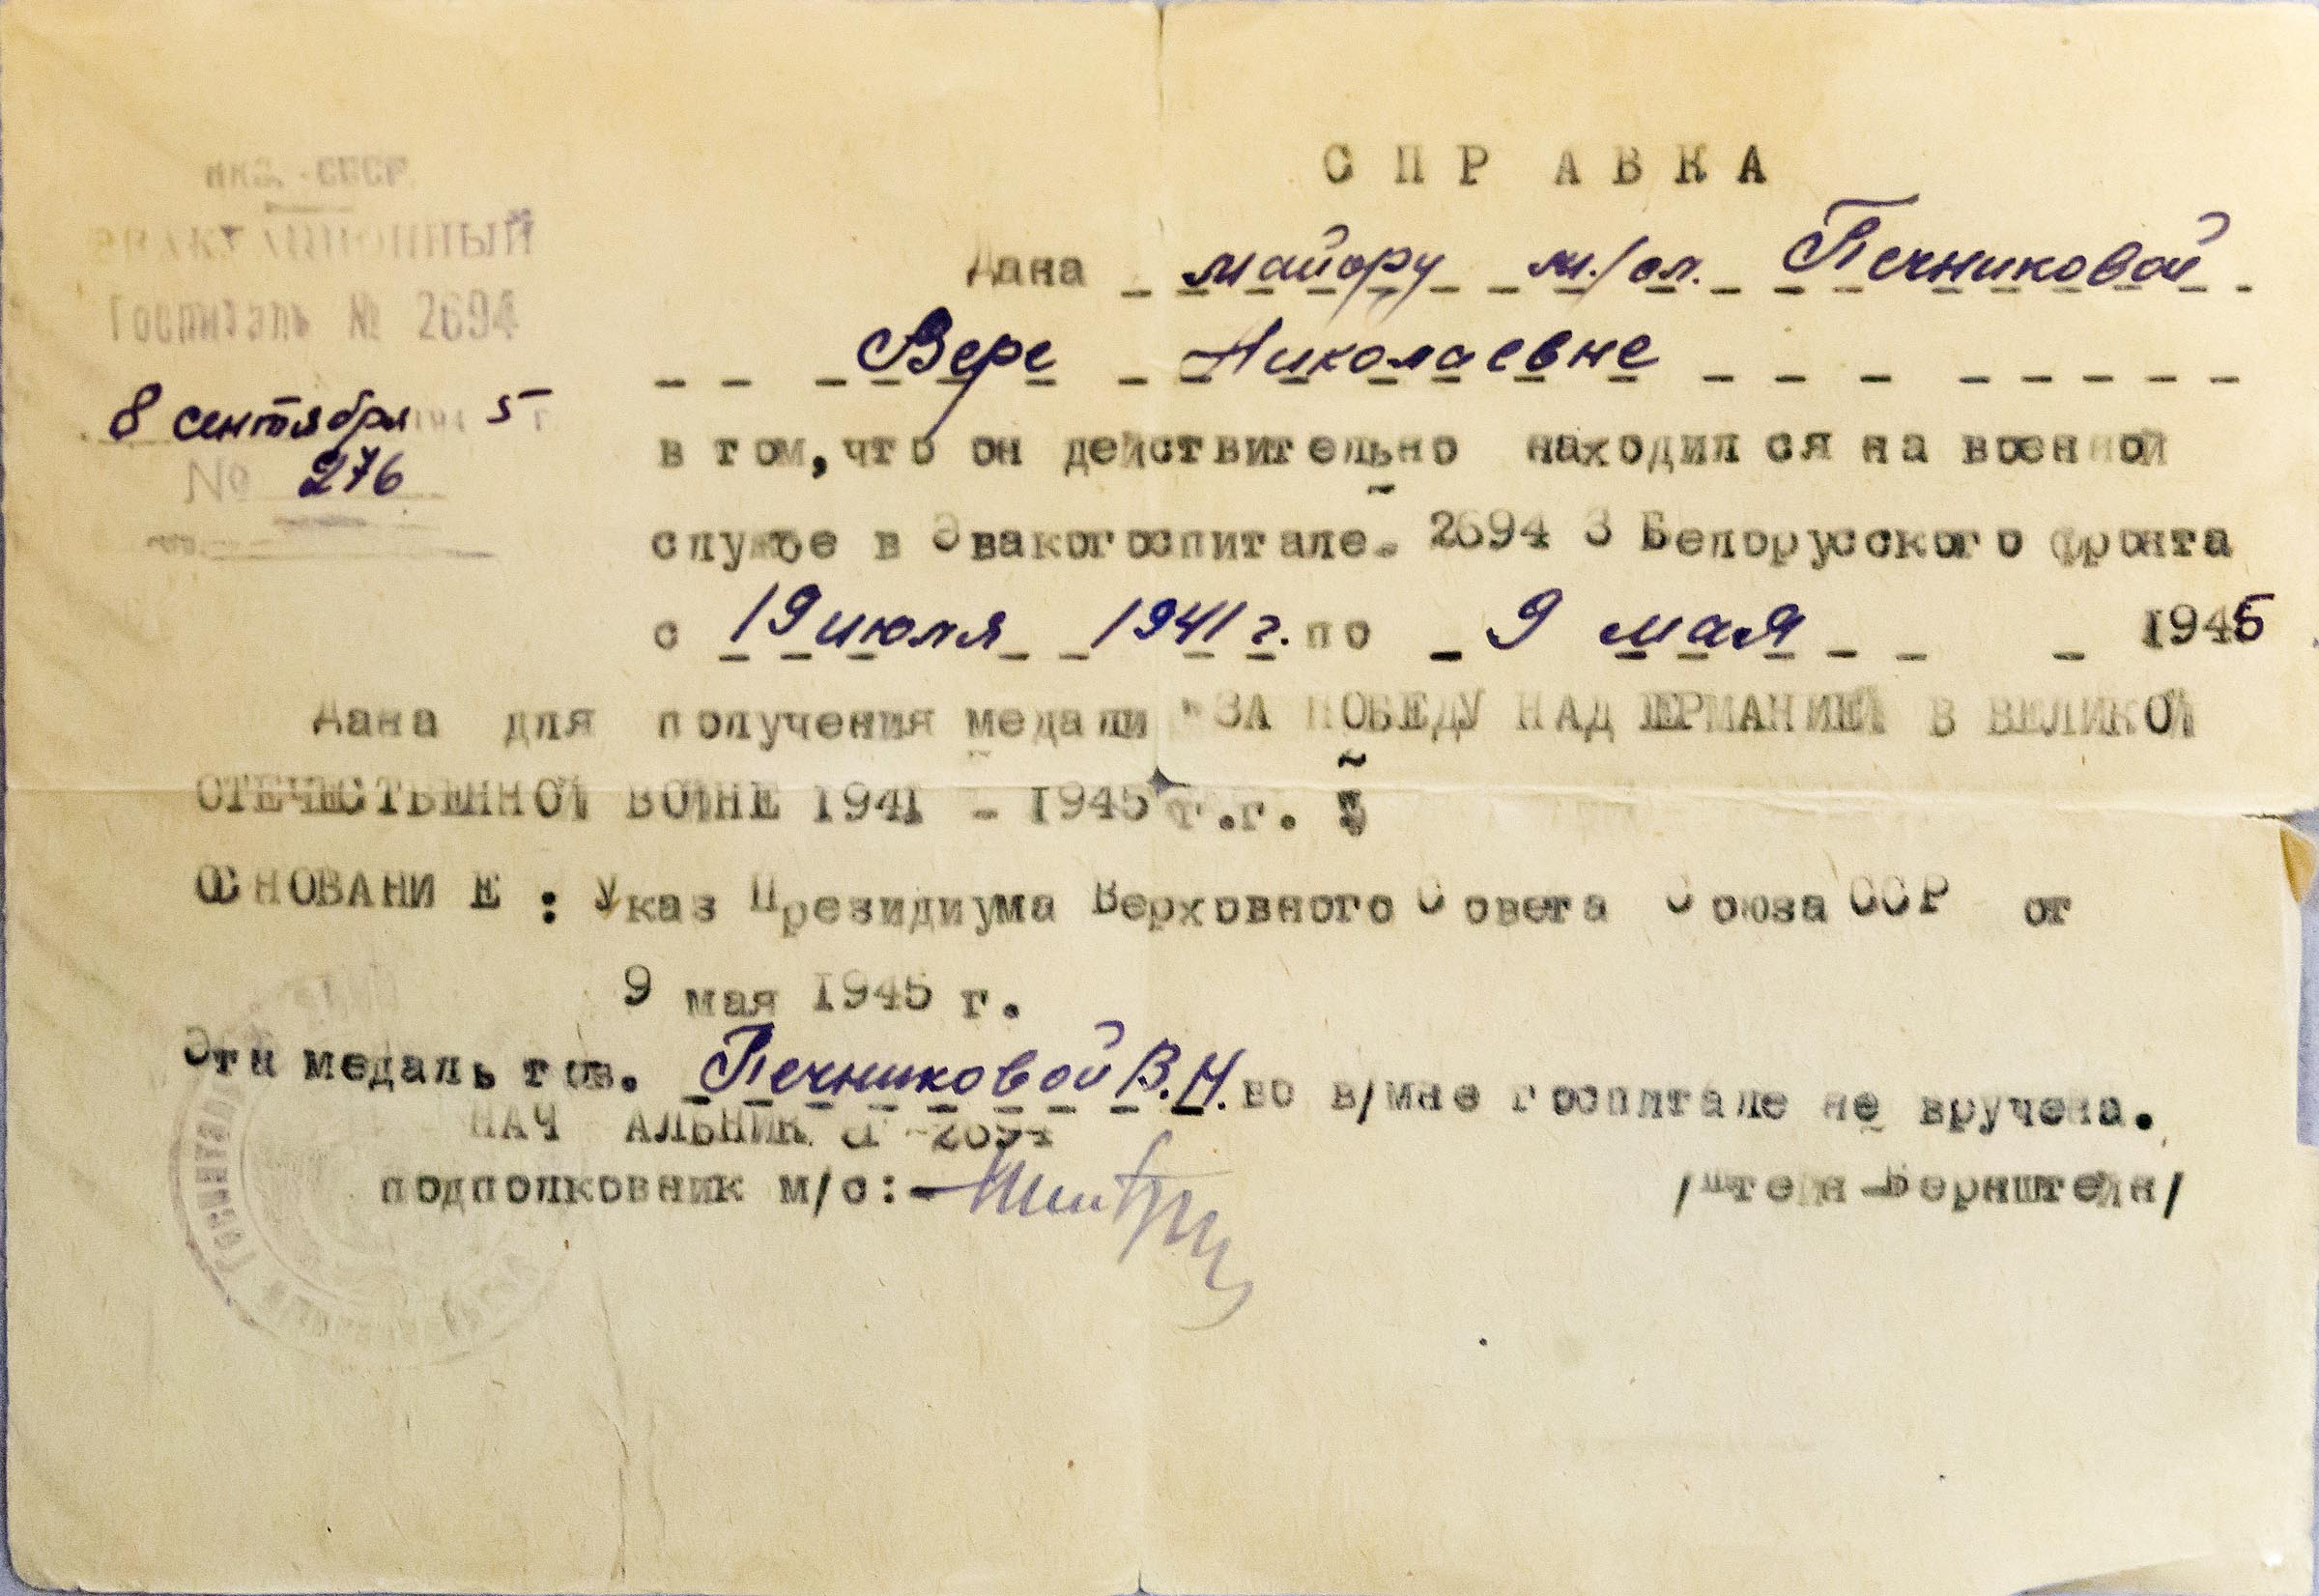 НКЗ. - СССР.
ЭВАКУАЦИОННЫЙ
Госпиталь № 2694
8 сентября 194 5 г.
№ 276
СПРАВКА
Дана майору м./сл. Печниковой
Вере Николаевне
в том, что он действительно находился на военной
службе в Эвакогоспитале. 2694 3 Белорусского фронта
с 19 июля 1941 г. по 9 мая 1945
Дана для получения медали "ЗА ПОБЕДУ НАД ГЕРМАНИЕЙ В ВЕЛИКОЙ
ОТЕЧЕСТВЕННОЙ ВОЙНЕ 1941 - 1945 г.г.
ОСНОВАНИЕ: Указ Президиума Верховного Совета Союза ССР от
9 мая 1945 г.
Эта медаль тов. Печниковой В.Н. во в/мне госпитале не вручена.
НАЧАЛЬНИК 2694
подполковник м/с:-
/Штейн-Бернштейн/
Госпиталь